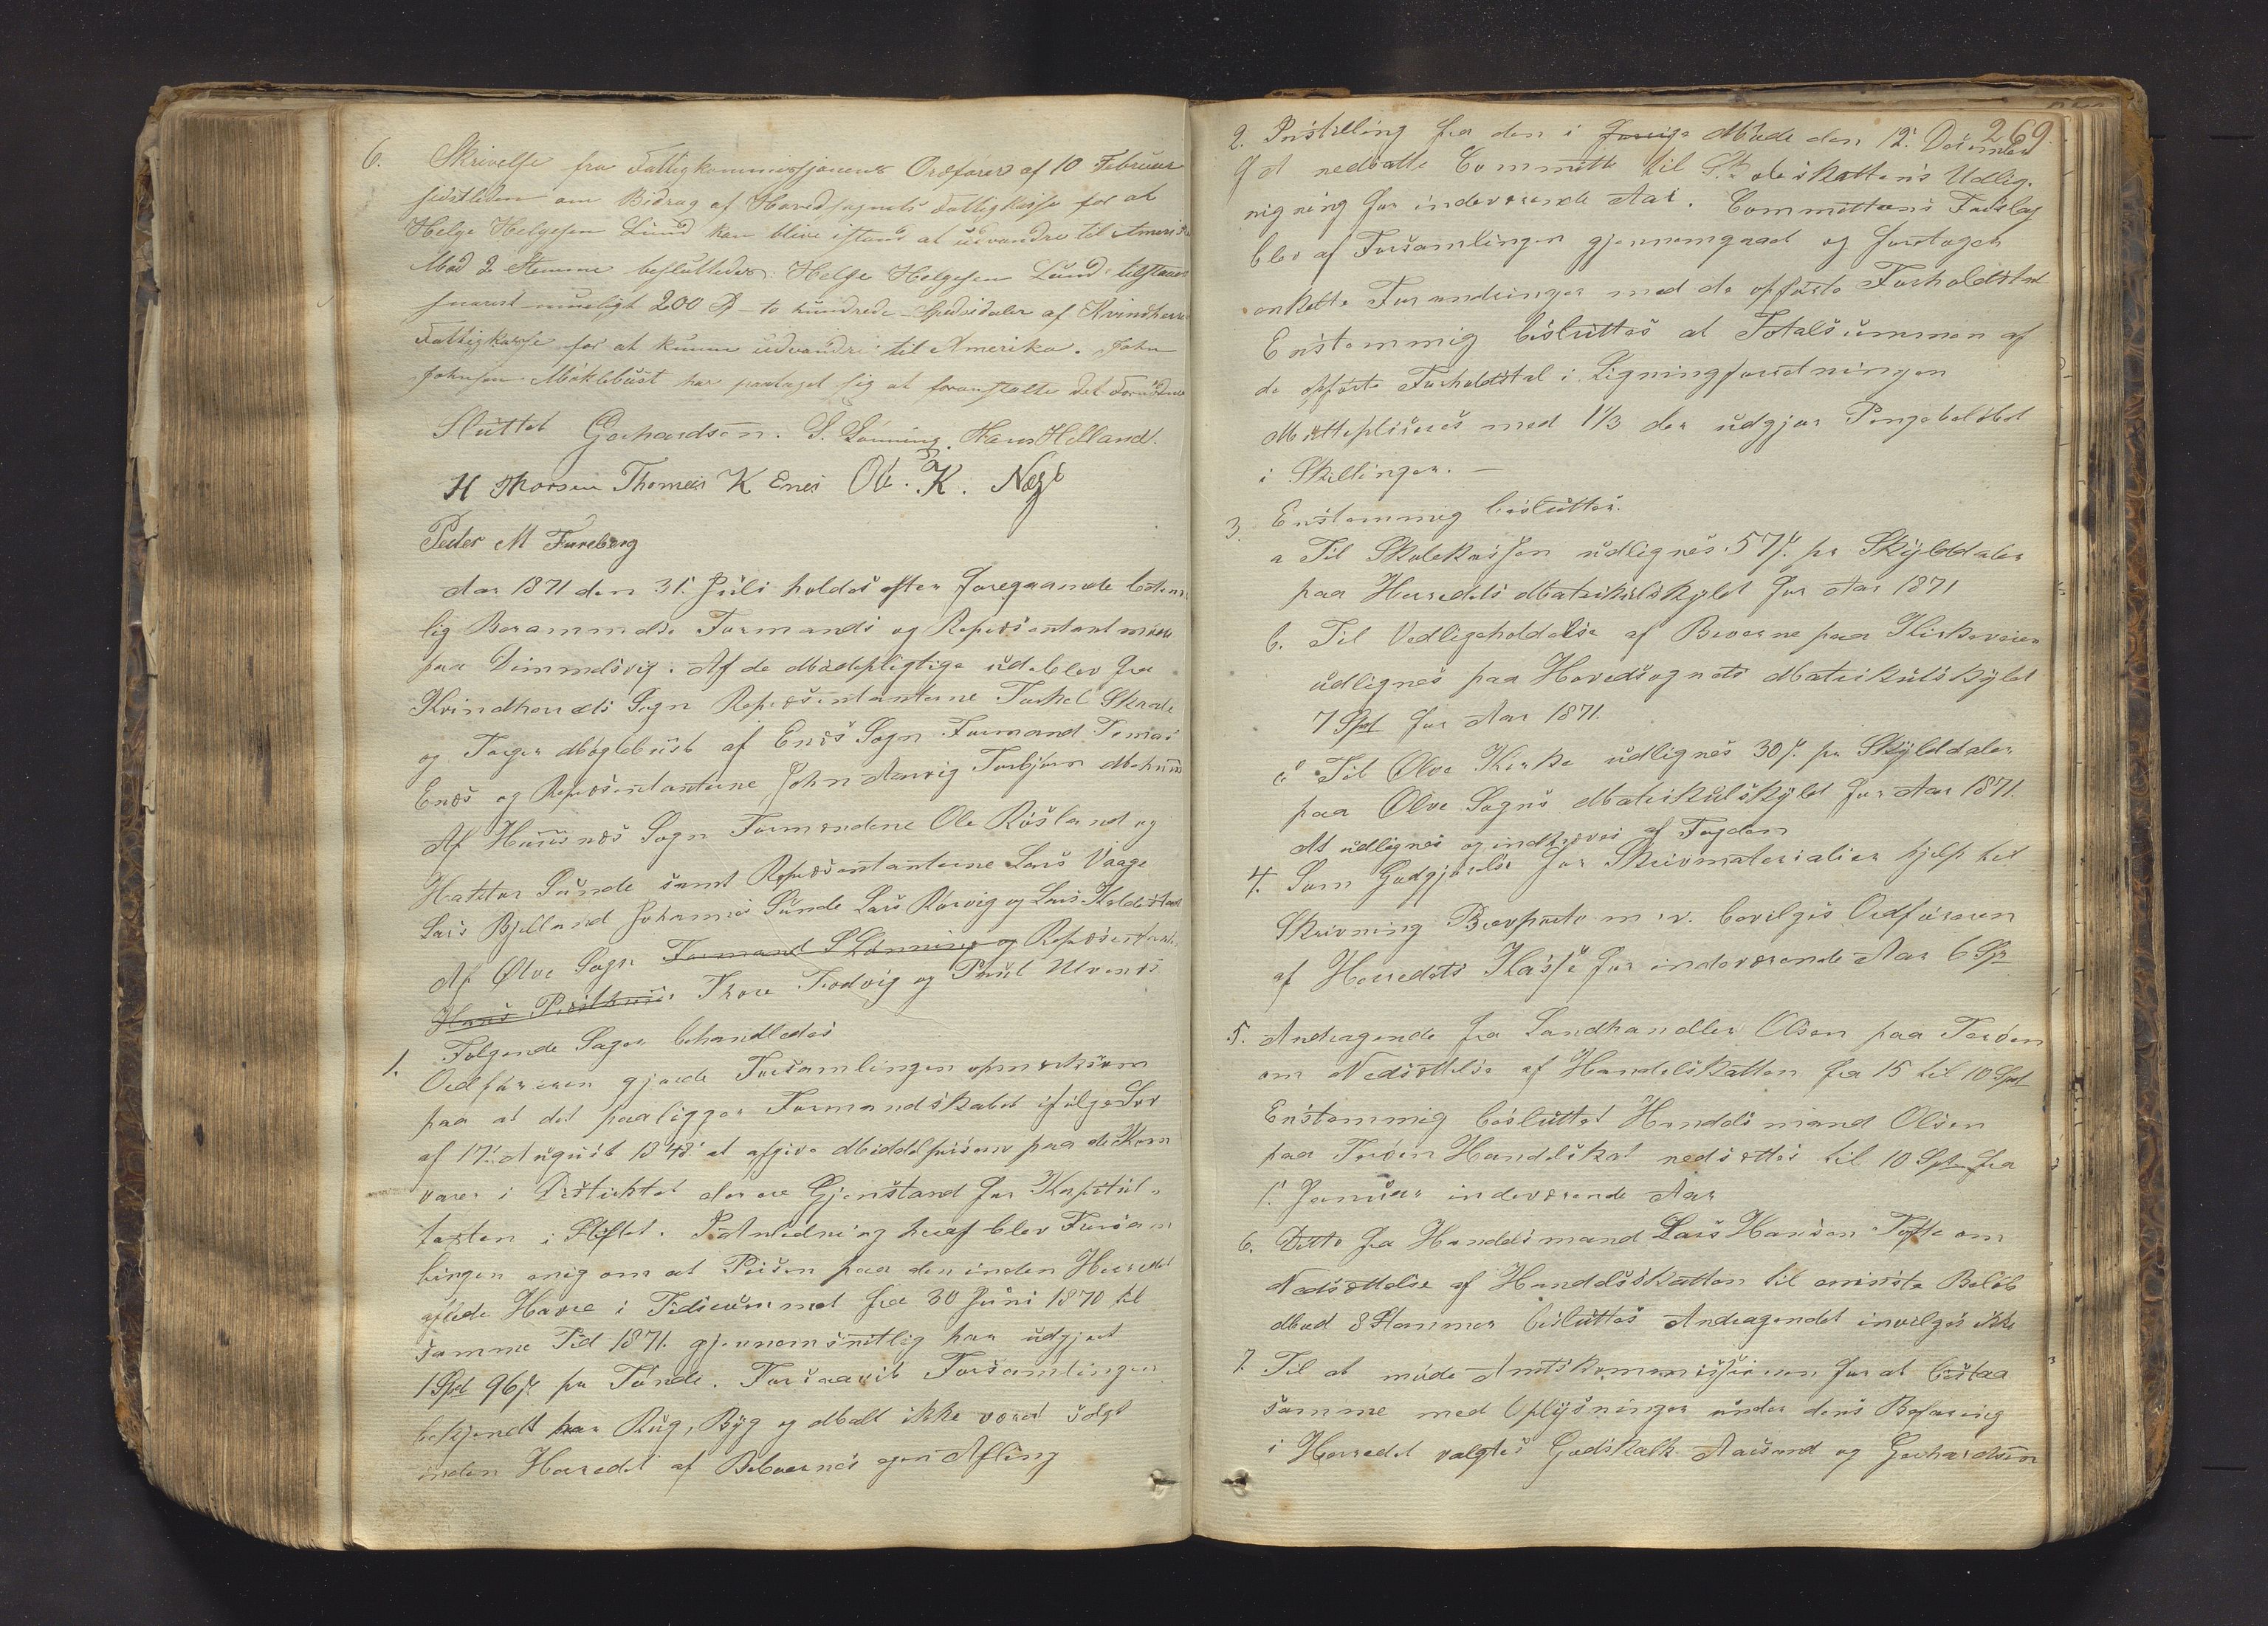 6. Skrivelse fra Fattigkommissjonens Ordfører af 10 Februar
sidstleden om Bidrag af Hovedsognets Fattigkasse for at
Helge Helgesen Lund kan blive istand at udvandre til Amerika
Mod 2 Stemme besluttedes: Helge Helgesen Lund tilstaaes
snarest mueligt 200 Spd - to hundrede Spedsidaler af Kvindherre
Fattigkasse for at kunne udvandre til Amerika. John
Johnsen Møklebust har paataget sig at foranstalte det Fornødne
Sluttet Gerhardsen. S. Lønning. Hans Helland.
H Thorsen Thomas K Enes Ole. K. Næs
Peder M Fureberg
Aar 1871 den 31. Juli holdes efter foregaaende lovm
lig Berammelse Formands og Repræsentantmøde
paa Dimmelsvig. Af de Mødepligtige udeblev fra
Kvindherreds Sogn Repræsentanterne Torkel Skaale
og Torger Møglebust af Enæs Sogn Formand Tomas
Enæs og Repræsentanterne John Aarvig Torbjørn
Af Huusnæs Sogn Formændene Ole Røsland og
Hattor Sunde samt Repræsentanterne Lars Vaage
Lars Bjelland Johannes Sunde Lars Rørvig og Lars
Af Ølve Sogn Formand S Lønning og Repræsentant
Hans Tvedvig og Poul Ulvenes
Følgende Sager behandledes
1. Ordføreren gjorde Forsamlingen opmerksom
paa at det paaligger Formandskabet ifølge Lov
af 17. August 1848 at afgive Middelpriserne paa de Korn
varer i Distriktet der ere Gjenstand for Kapitul-
taxten i Stiftet. I Anledning heraf blev Forsam
lingen enig om at Prisen paa den inden Herredet
aflede Havre i Tidsrummet fra 30 Juni 1870 til
samme Tid 1871. gjennemsnitlig har udgjort
1 Spd 96 s. pr Tønde. Forsaavit Forsamlingen
bekjendt har Rug, Byg og Malt ikke været solgt
inden Herredet af Beboernes egen Afling
269.
2. Instilling fra den i forrige Møde den 12. December
f A nedsatte Committe til Skoleskattens Udlig-
nigning for indeværende Aar. Committeens Forslag
blev af Forsamlingen gjennemgaaet og foretagen
enkelte Forandringer med de opførte Forholdstal
Enstemmig besluttes at Totalsummen af
de opførte Forholdstal i Ligningforretningen
Multipliseres med 1 1/3 der udgjør Pengebeløbet
i Skillinger. -
3. Enstemmig besluttes.
a Til Skolekassen udlignes 57 s. pr Skylddaler
paa Herredets Matrikulskyld for Aar 1871
b. Til Vedligeholdelse af Broerne paa Kirkeveien
udlignes paa Hovedsognets Matrikulskyld
7 Spd for Aar 1871.
c Til Ølve Kirke udlignes 30 s. pr Skylddaler
paa Ølve Sogns Matrikulskyld for Aar 1871.
At udlignes og indkræves af Fogden
4. Som Godgjørelse for Skrivmaterialier hjelp til
Skrivning Brevporto m. v. bevilges Ordføreren
af Herredets Kasse for indeværende Aar 6 Spd
5. Andragende fra Landhandler Olsen paa Terøen
om Nedsættelse af Handelskatten fra 15 til 10 Spd
Enstemmig besluttet Handelsmand Olsen
paa Terøen Handelskat nedsættes til 10 Spd fra
1. Januar indeværende Aar
6. Ditto fra Handelsmand Lars Hansen Tofte om
Nedsættelse af Handelsskatten til mindste Beløb
Mod 8 Stemmer besluttes Andragendet invilges ikke
7. Til at møde Amtskommissionen for at bistaa
samme med Oplysninger under dens Befaring
i Herredet valgtes Godskalk Aarsand og Gerhardsen